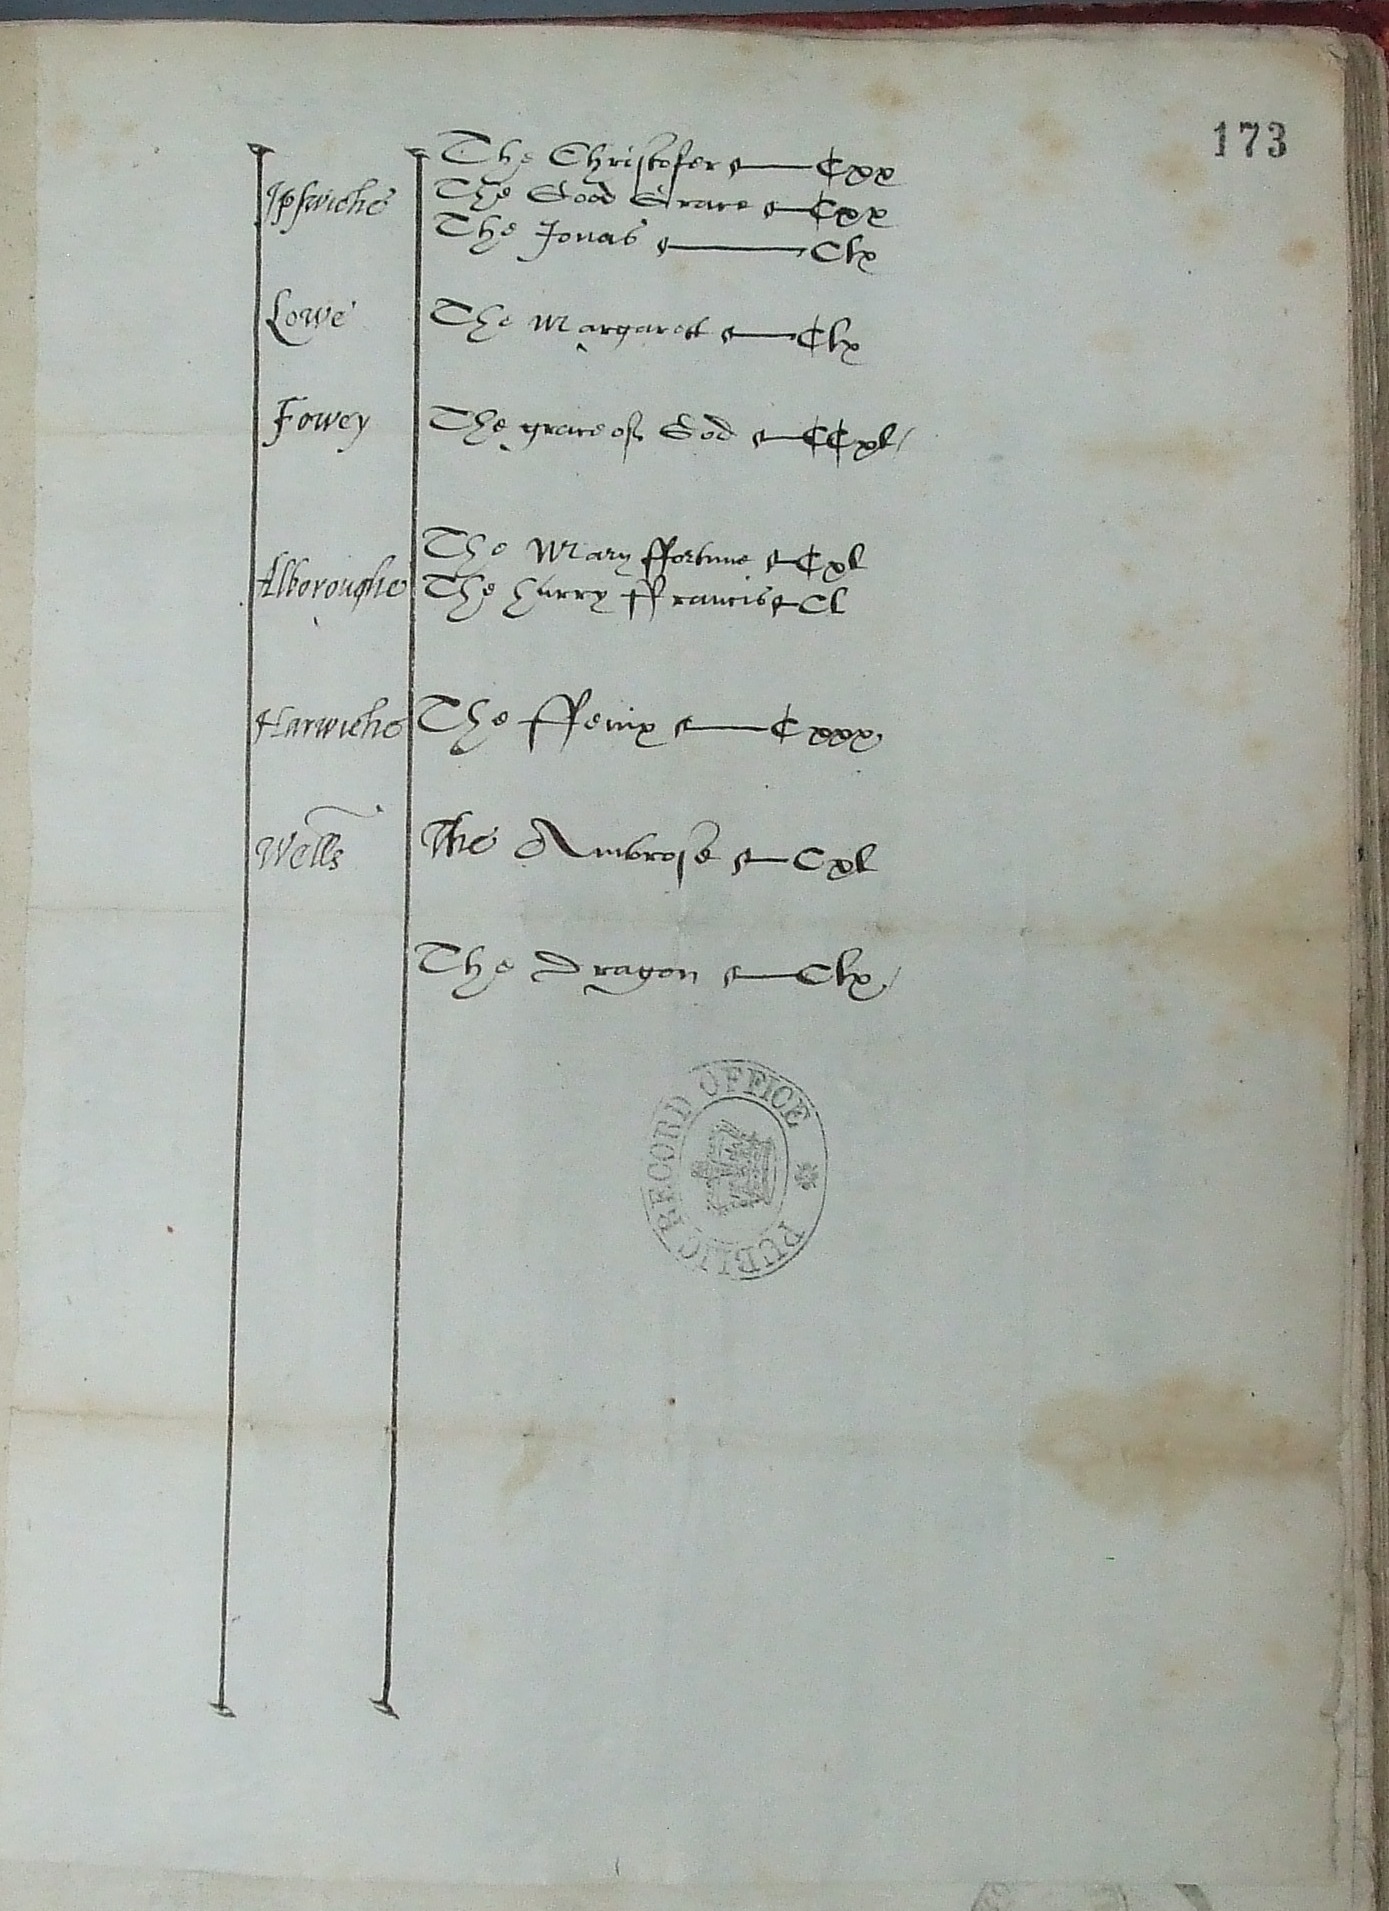 173
The Christofer Cxx
Ipswiche The Good Grace Cxx
The Jonas Clx
Lowe The Margarett Clx
Fowey The grace of God CCxl
The Mary ffortune Cxl
Alboroughe The Harry ffrancis Cl
Harwiche The ffenix Cxxx
Wells The Ambrose Cxl
The Dragon Clx
PUBLIC RECORD OFFICE